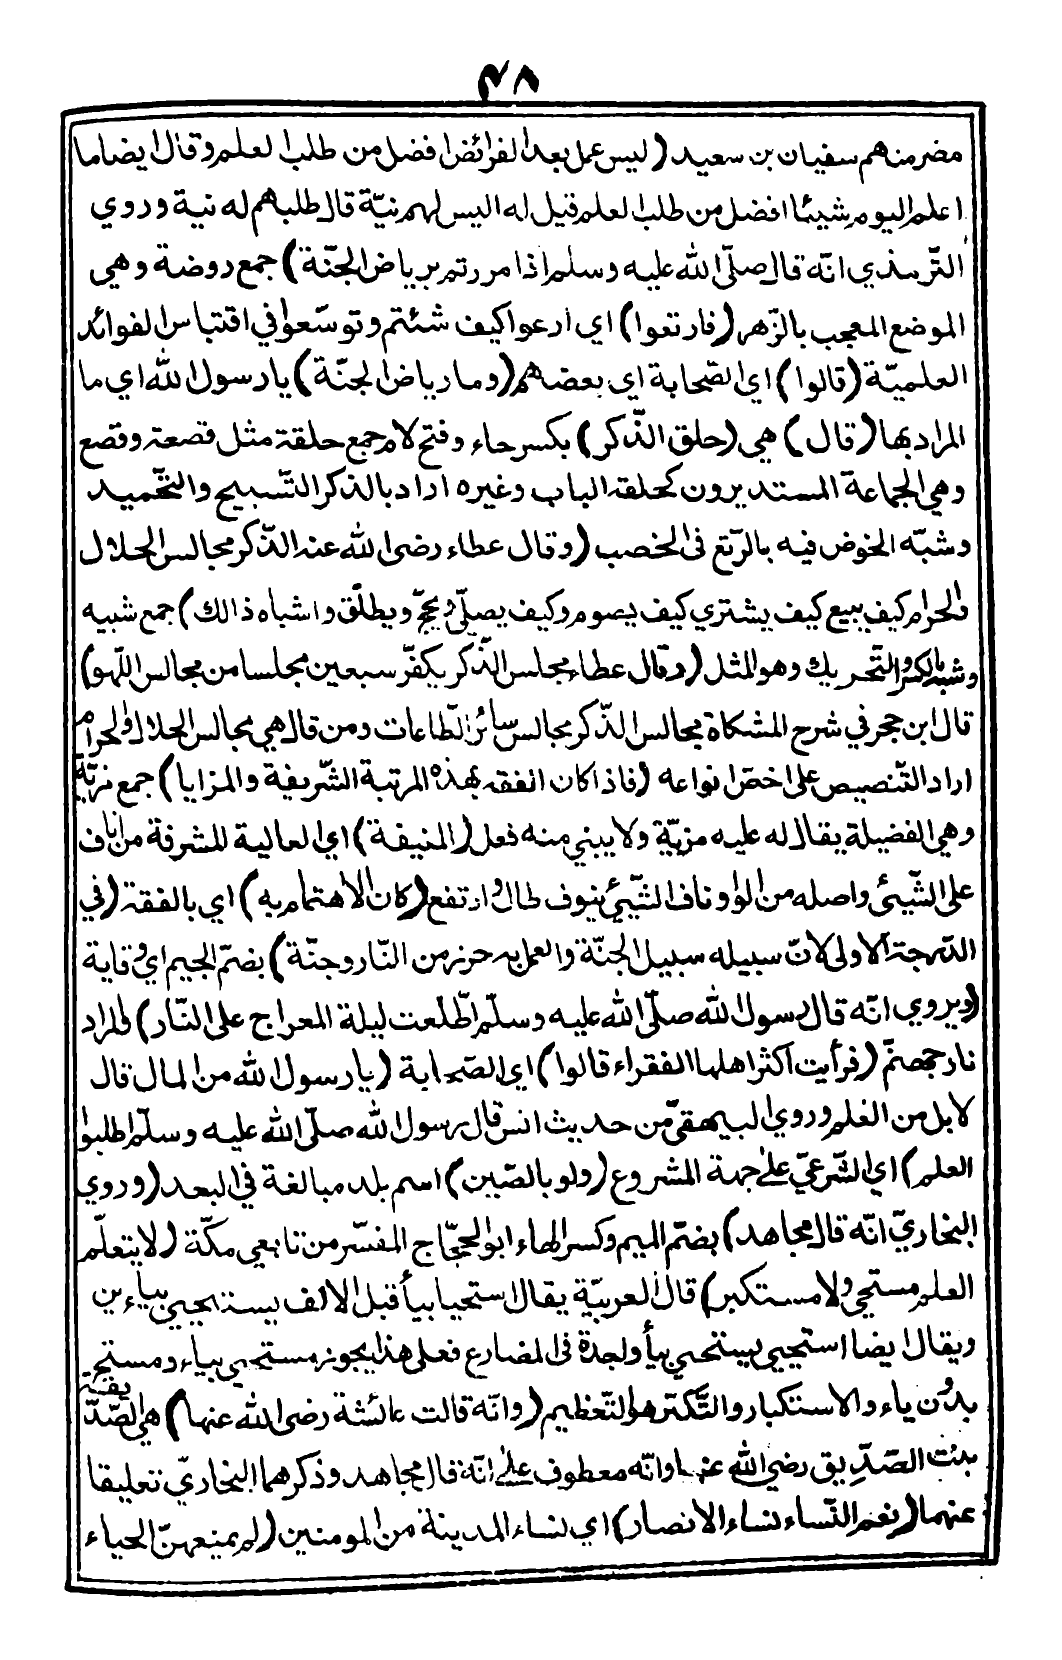 ٣٨
مضر منهم سفيان بن سعيد (ليس عمل بعد الفرائض افضل من طلب العلم وقال ايضا ما
اعلم اليوم شيئا افضل من طلب العلم قيل له اليس لهم نيّة قال طلبهم له نية وروي
الترمذي انّه قال صلّى الله عليه وسلم اذا مررتم برياض الجنّة) جمع روضة وهي
الموضع المعجب بالزّهر (فارتعوا) اي ارعوا كيف شئتم وتوسّعوا في اقتباس الفوائد
العلميّة (قالوا) اي الصّحابة اي بعضهم (وما رياض الجنّة) يا رسول الله اي ما
المراد بها (قال) هي (حلق الذّكر) بكسر حاء وفتح لام جمع حلقة مثل قصعة وقصع
وهي الجماعة المستديرون كحلقة الباب وغيره اراد بالذكر التّسبيح والتحّميد
وشبّه الخوض فيه بالرّتع في الخصب (وقال عطاء رضي الله عنه الذّكر مجالس الحلال
والحرام كيف يبيع كيف يشتري كيف يصوم وكيف يصلّي ويحجّ ويطلّق واشباه ذالك) جمع شبيه
وشبه بالكسر والتّحريك وهو المثل (وقال عطاء مجلس الذّكر يكفّر سبعين مجلسا من مجالس اللّهو)
قال ابن حجر في شرح المشكاة مجالس الذّكر مجالس سائر الطّاعات ومن قال هي مجالس الحلال والحرام
اراد التّنصيص على اخصّ انواعه (فاذا كان الفقه بهذه المرتبة الشّريفة والمزايا) جمع مزيّة
وهي الفضيلة يقال له عليه مزيّة ولا يبنى منه فعل (المنيفة) اي العالية للمشرفة من اناف
على الشّيئ واصله من الواو ناف الشّيئ ينوف طال وارتفع (كان الاهتمام به) اي بالفقة (في
الدّرجة الاولى لانّ سبيله سبيل الجنّة والعمل به حرز من النّار وجنّة) بضمّ الجيم اي وقاية
(ويروي انّه قال رسول الله صلّى الله عليه وسلّم اطّلعت ليلة المعراج على النّار) والمراد
نار جهنّم (فرأيت اكثر اهلها الفقراء قالوا) اي الصّحابة (يا رسول الله من المال قال
لا بل من العلم وروي البيهقيّ من حديث انس قال رسول الله صلّى الله عليه وسلّم اطلبوا
العلم) اي الشّرعيّ على جهة المشروع (ولو بالصّين) اسم بلد مبالغة في البعد (وروي
البخاريّ انّه قال مجاهد) بضمّ الميم وكسر الهاء ابو الحجّاج المفسّر من تابعي مكّة (لا يتعلّم
العلم مستحي ولا مستكبر) قال العربيّة يقال استحيا بيأ قبل الالف يستحيي بياءين
ويقال ايضا استحيى يستحي بيأ واحدة في المضارع فعلى هذا يجوز مستحيي بياء ومستح
بدون ياء والاستكبار والتّكبّر هو التّعظيم (وانّه قالت عائشة رضي الله عنها) هي الصّدّيقة
بنت الصّدّيق رضي الله عنهما وانّه معطوف على انّه قال مجاهد وذكرهما البخاريّ تعليقا
عنهما (نعم النّساء نساء الانصار) اي نساء المدينة من المومنين (لم يمنعهنّ الحياء